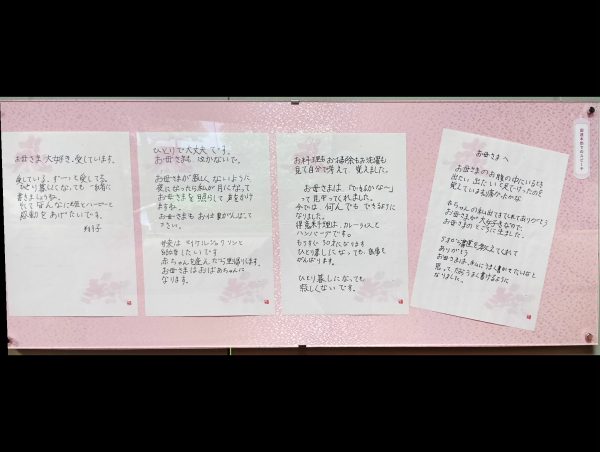 お母さまへ
お母さまのお腹の中にいるとき
出たい出たいと足でけったのを
覚えている
赤ちゃんの私 ありがとう
お母さまが大好きなので、
お母さまのところに生ました。
5才から書道を教えてくれて
ありがとう
お母さまは、 うまく書かせたいなと
思って だから うまく書けるように
なりました。
お料理もお掃除もお洗濯も
見て自分で考えて、覚えました。
お母さまは「できるかな〜」
って見守ってくれました。
今では 何んでも できるように
なりました。
得意料理は、カレーライスと
ハンバーグです。
もうすぐ30才になります
ひとり暮しになっても、お食事も
がんばります。
ひとり暮しになっても
寂しくないです。
ひとりで大丈夫です。
お母さまも 泣かないで。
お母さまが寂しくないように
夜になったら私が月になって
お母さまを照らして 声をかけ
ますね。
お母さまも お仕事がんばって
下さい。
将来は マイケルジャクソンと
結婚をしたいです
赤ちゃんを産んだら里帰りします。
お母さまはおばあちゃんに
なります。
お母さま 大好き、愛しています。
愛している、ず〜っと愛してる。
ひとり暮しなっても 一緒に
書きましょうね。
そして皆んなに元気とハッピーと
感動をあげたいです。
翔子